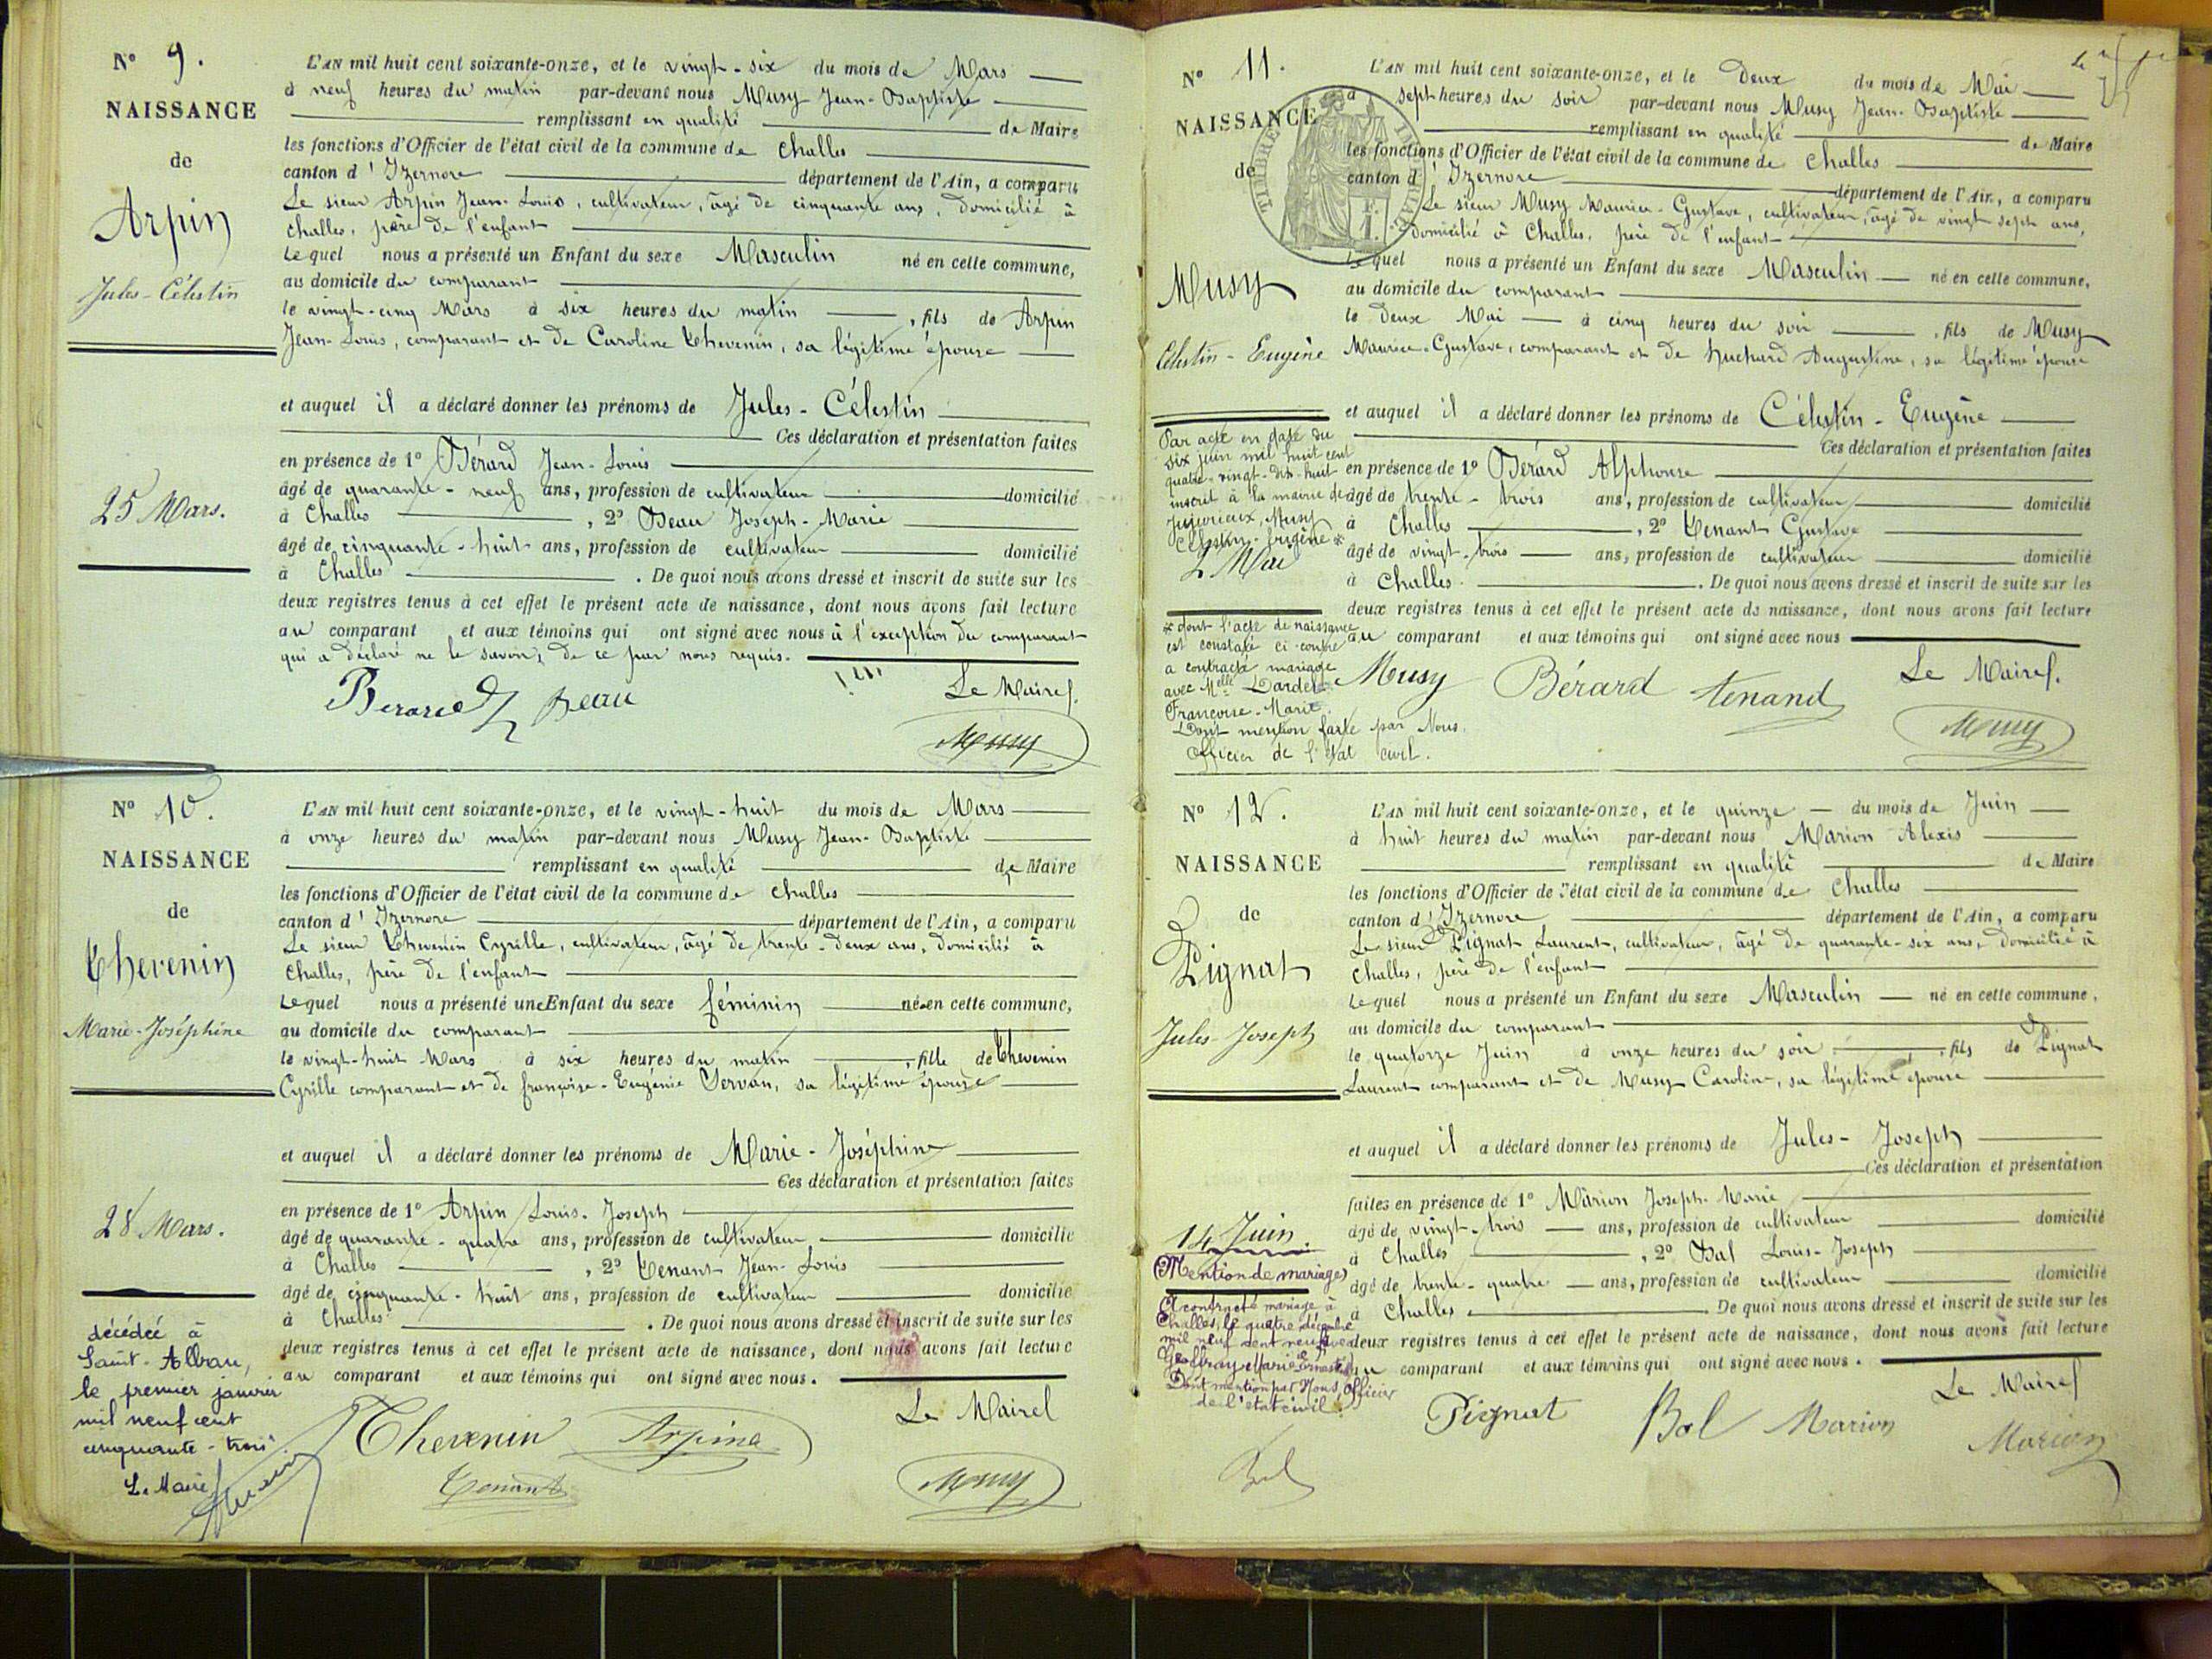 N° 9.
NAISSANCE
de
Arpin
Jules-Célestin
25 Mars.
L'AN mil huit cent soixante-onze, et le vingt-six du mois de Mars
à neuf heures du matin par-devant nous Musy Jean-Baptiste
remplissant en qualité de Maire
les fonctions d'Officier de l'état civil de la commune de Challes
canton d'Izernore département de l'Ain, a comparu
Le sieur Arpin Jean-Louis, cultivateur, âgé de cinquante ans, domicilié à
Challes, père de l'enfant
Lequel nous a présenté un Enfant du sexe Masculin né en cette commune,
au domicile du comparant
le vingt-cinq Mars à six heures du matin, fils de Arpin
Jean-Louis, comparant et de Caroline Thevenin, sa légitime épouse
et auquel il a déclaré donner les prénoms de Jules-Célestin
Ces déclaration et présentation faites
en présence de 1° Bérard Jean-Louis
âgé de quarante-neuf ans, profession de cultivateur domicilié
à Challes, 2° Beau Joseph-Marie
âgé de cinquante-huit ans, profession de cultivateur domicilié
à Challes. De quoi nous avons dressé et inscrit de suite sur les
deux registres tenus à cet effet le présent acte de naissance, dont nous avons fait lecture
au comparant et aux témoins qui ont signé avec nous à l'exception du comparant
qui a déclaré ne le savoir, de ce par nous requis.
Berard Beau
Le Maire
Musy
N° 10.
NAISSANCE
de
Thevenin
Marie-Joséphine
28 Mars.
décédée à
Saint-Alban,
le premier janvier
mil neuf cent
cinquante-trois
Le Maire
L'AN mil huit cent soixante-onze, et le vingt-huit du mois de Mars
à onze heures du matin par-devant nous Musy Jean-Baptiste
remplissant en qualité de Maire
les fonctions d'Officier de l'état civil de la commune de Challes
canton d'Izernore département de l'Ain, a comparu
Le sieur Thevenin Cyrille, cultivateur, âgé de trente-deux ans, domicilié à
Challes, père de l'enfant
Lequel nous a présenté une Enfant du sexe féminin née en cette commune,
au domicile du comparant
le vingt-huit Mars à six heures du matin, fille de Thevenin
Cyrille comparant et de françoise-Eugénie Servan, sa légitime épouse
et auquel il a déclaré donner les prénoms de Marie-Joséphine
Ces déclaration et présentation faites
en présence de 1° Arpin Louis-Joseph
âgé de quarante-quatre ans, profession de cultivateur domicilié
à Challes, 2° Tenant Jean-Louis
âgé de cinquante-huit ans, profession de cultivateur domicilié
à Challes. De quoi nous avons dressé et inscrit de suite sur les
deux registres tenus à cet effet le présent acte de naissance, dont nous avons fait lecture
au comparant et aux témoins qui ont signé avec nous.
Le Maire
Thevenin Arpin
Tenant
Musy
N° 11.
NAISSANCE
de
TIMBRE IMPERIAL
Musy
Célestin-Eugène
Par acte en date du
six juin mil huit cent
quatre-vingt-dix-huit
inscrit à la mairie de
Jujurieux, Musy
Célestin-Eugène *
2 Mai
* dont l'acte de naissance
est constaté ci-contre
a contracté mariage
avec Melle Dardel
Françoise-Marie.
Dont mention faite par Nous
Officier de l'état civil.
L'AN mil huit cent soixante-onze, et le Deux du mois de Mai
à sept heures du soir par-devant nous Musy Jean-Baptiste
remplissant en qualité de Maire
les fonctions d'Officier de l'état civil de la commune de Challes
canton d'Izernore département de l'Ain, a comparu
Le sieur Musy Maurice-Gustave, cultivateur, âgé de vingt sept ans,
domicilié à Challes, père de l'enfant
Lequel nous a présenté un Enfant du sexe Masculin né en cette commune,
au domicile du comparant
le Deux Mai à cinq heures du soir, fils de Musy
Maurice-Gustave, comparant et de huchard Augustine, sa légitime épouse
et auquel il a déclaré donner les prénoms de Célestin-Eugène
Ces déclaration et présentation faites
en présence de 1° Bérard Alphonse
âgé de trente-trois ans, profession de cultivateur domicilié
à Challes, 2° Tenant Gustave
âgé de vingt-trois ans, profession de cultivateur domicilié
à Challes. De quoi nous avons dressé et inscrit de suite sur les
deux registres tenus à cet effet le présent acte de naissance, dont nous avons fait lecture
au comparant et aux témoins qui ont signé avec nous
Le Maire
Musy Bérard tenand
Musy
N° 12.
NAISSANCE
de
Pignat
Jules-Joseph
14 Juin.
(Mention de mariage)
A contracté mariage à
Challes, le quatre décembre
mil neuf cent neuf avec
Geoffray Marie Ernestine
Dont mention par Nous, Officier
de l'état civil.
Bal
L'AN mil huit cent soixante-onze, et le quinze du mois de Juin
à huit heures du matin par-devant nous Marion Alexis
remplissant en qualité de Maire
les fonctions d'Officier de l'état civil de la commune de Challes
canton d'Izernore département de l'Ain, a comparu
Le sieur Pignat Laurent, cultivateur, âgé de quarante-six ans, domicilié à
Challes, père de l'enfant
Lequel nous a présenté un Enfant du sexe Masculin né en cette commune,
au domicile du comparant
le quatorze Juin à onze heures du soir, fils de Pignat
Laurent comparant et de Musy Caroline, sa légitime épouse
et auquel il a déclaré donner les prénoms de Jules-Joseph
Ces déclaration et présentation
faites en présence de 1° Marion Joseph-Marie
âgé de vingt-trois ans, profession de cultivateur domicilié
à Challes, 2° Bal Louis-Joseph
âgé de trente-quatre ans, profession de cultivateur domicilié
à Challes. De quoi nous avons dressé et inscrit de suite sur les
deux registres tenus à cet effet le présent acte de naissance, dont nous avons fait lecture
au comparant et aux témoins qui ont signé avec nous.
Le Maire
Pignat Bal Marion
Marion